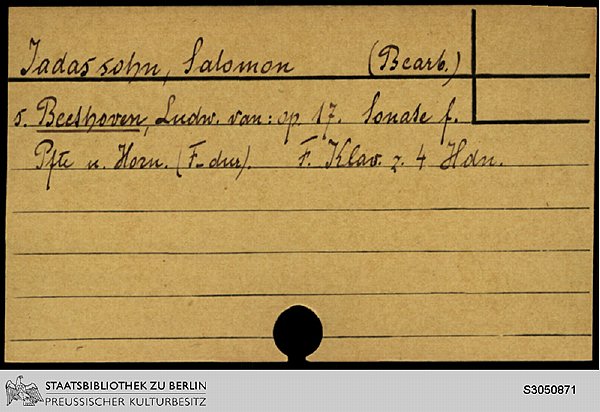 Jadassohn, Salomon (Bearb.)
s. Beethoven, Ludw. van: op. 17. Sonate f.
Pfte u. Horn. (F-dur). F. Klav. z. 4 Hdn.
STAATSBIBLIOTHEK ZU BERLIN
PREUSSISCHER KULTURBESITZ
S3050871